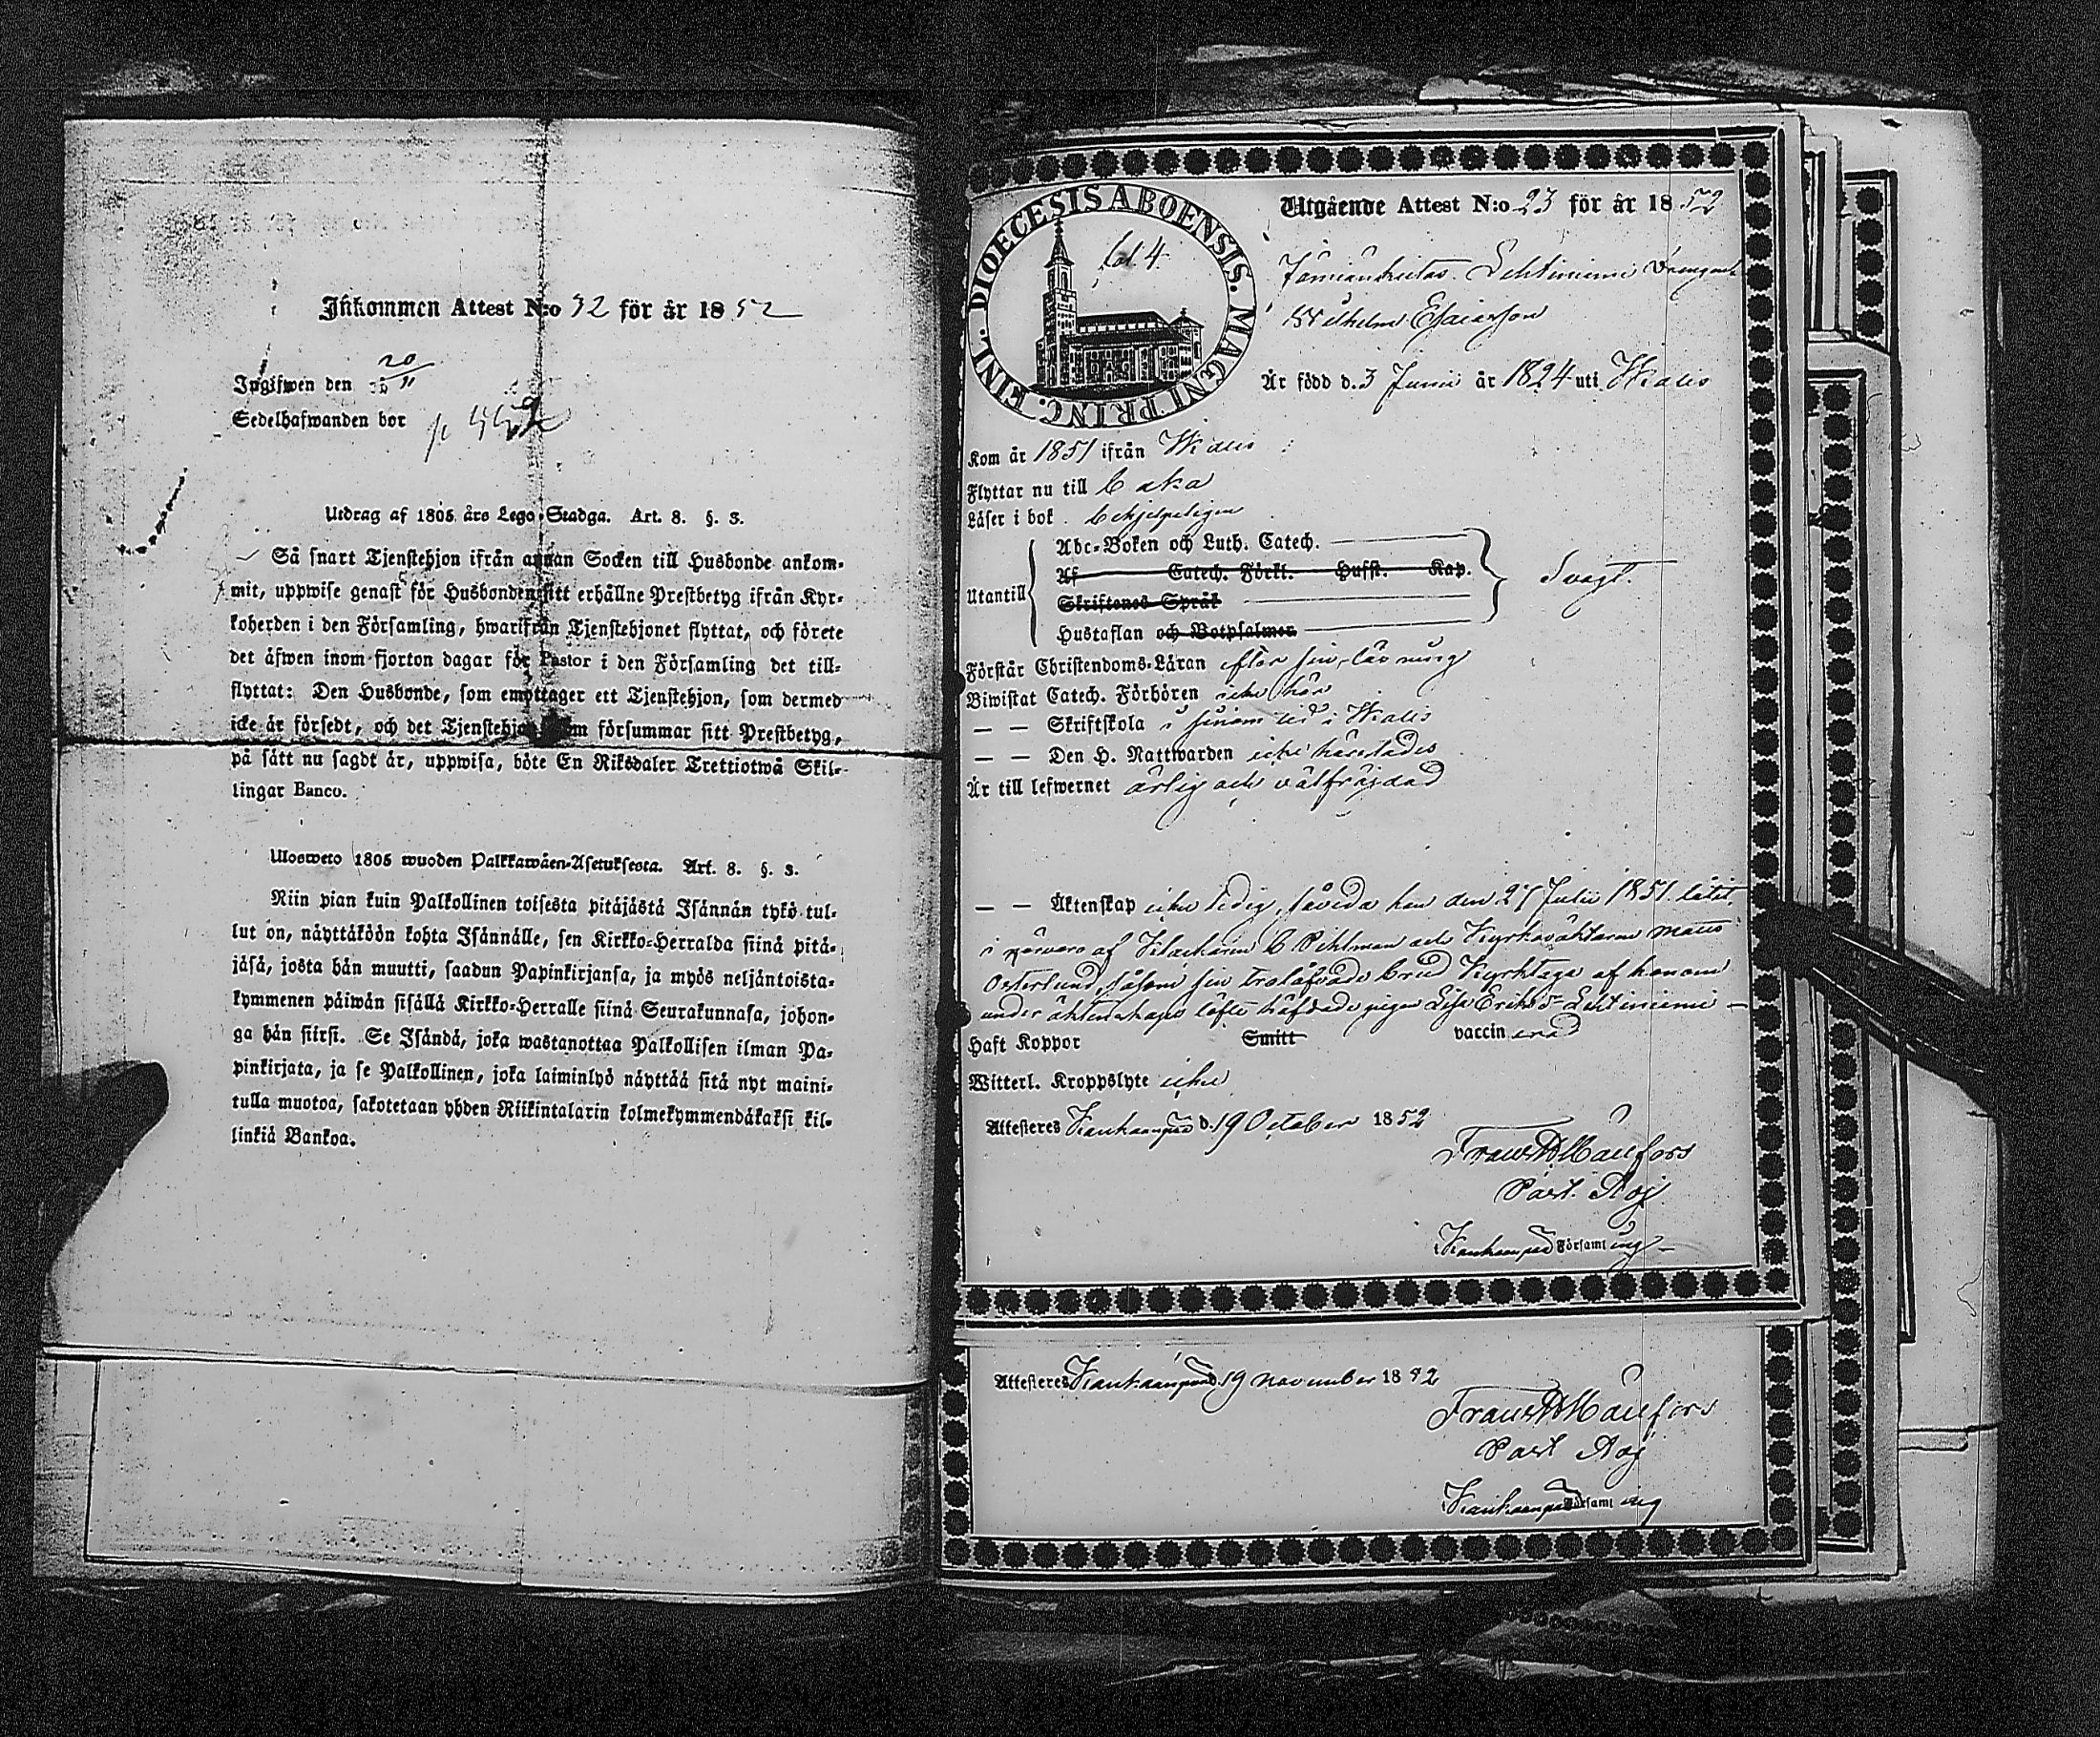 Inkommen Attest N:o 32 för år 1852
Ingifwen den 20/11
Sedelhafwanden bor p
Utdrag af 1805 års Lego-Stadga. Art. 8. §. 3.
Så snart Tjenstehjon ifrån annan Socken till Husbonde ankom-
mit, uppwise genast för Husbonden sitt erhållne Prestbetyg ifrån Kyr-
koherden i den Församling, hwarifrån Tjenstehjonet flyttat, och förete
det äfwen inom fjorton dagar för Pastor i den Församling det till-
flyttat: Den Husbonde, som emottager ett Tjenstehjon, som dermed
icke är försedt, och det Tjenstehjon som försummar sitt Prestbetyg,
på sätt nu sagdt är, uppwisa, böte En Riksdaler Trettiotwå Skil-
lingar Banco.
Ulosweto 1805 wuoden Palkkawäen-Asetuksesta. Art. 8. §. 3.
Niin pian kuin Palkollinen toisesta pitäjästä Isännän tykö tul-
lut on, näyttäköön kohta Isännälle, sen Kirkko-Herralda siinä pitä-
jäsä, josta hän muutti, saadun Papinkirjansa, ja myös neljäntoista-
kymmenen päiwän sisällä Kirkko-Herralle siinä Seurakunnasa, johon-
ga hän siirsi. Se Isändä, joka wastanottaa Palkollisen ilman Pa-
pinkirjata, ja se Palkollinen, joka laiminlyö näyttää sitä nyt maini-
tulla muotoa, sakotetaan yhden Riikintalarin kolmekymmendäkaksi kil-
linkiä Bankoa.
DIOECESIS ABOENSIS. MAGNI PRINC. FINL.
fol. 4.
Utgående Attest N:o 23 för år 1852
Lehtiniemi Drengen
Wilhelm Esaiasson
Är född d. 3 Junii år 1824 uti Hvalis
Kom år 1851 ifrån
Flyttar nu till
Läser i bok behjelpeligen
Utantill
Abc-Boken och Luth. Catech.
Af Catech. Förkl. Husst. Kap.
Skriftenes Språk
Hustaflan och Botpsalmer
Svagt.
Förstår Christendoms-Läran efter sin lärnung
Biwistat Catech. Förhören icke här
— — Skriftskola i sinom tid i
— — Den H. Nattwarden icke härstädes
Är till lefwernet ärlig och välfräjdad
— — Äktenskap icke ledig, såvida han den 27 Julii 1851 låtit
i närvaro af Klockaren C Pihlman och Kyrkovaktaren Matts
Österlund, såsom sin trolåfvade brud Kyrktaga af honom
under äktenskaps löfte häfdade pigan Lisa Eriksdr Lehtiniemi —
Haft Koppor Smitt vaccinerad
Witterl. Kroppslyte icke
Attesteres Kankaanpää d. 19 October 1852
Frans Máufors
Past. Adj
Kankaanpää Församling
Attesteres Kankaanpää d. 19 november 1852
Frans Máufors
Past Adj
Kankaanpää Församling